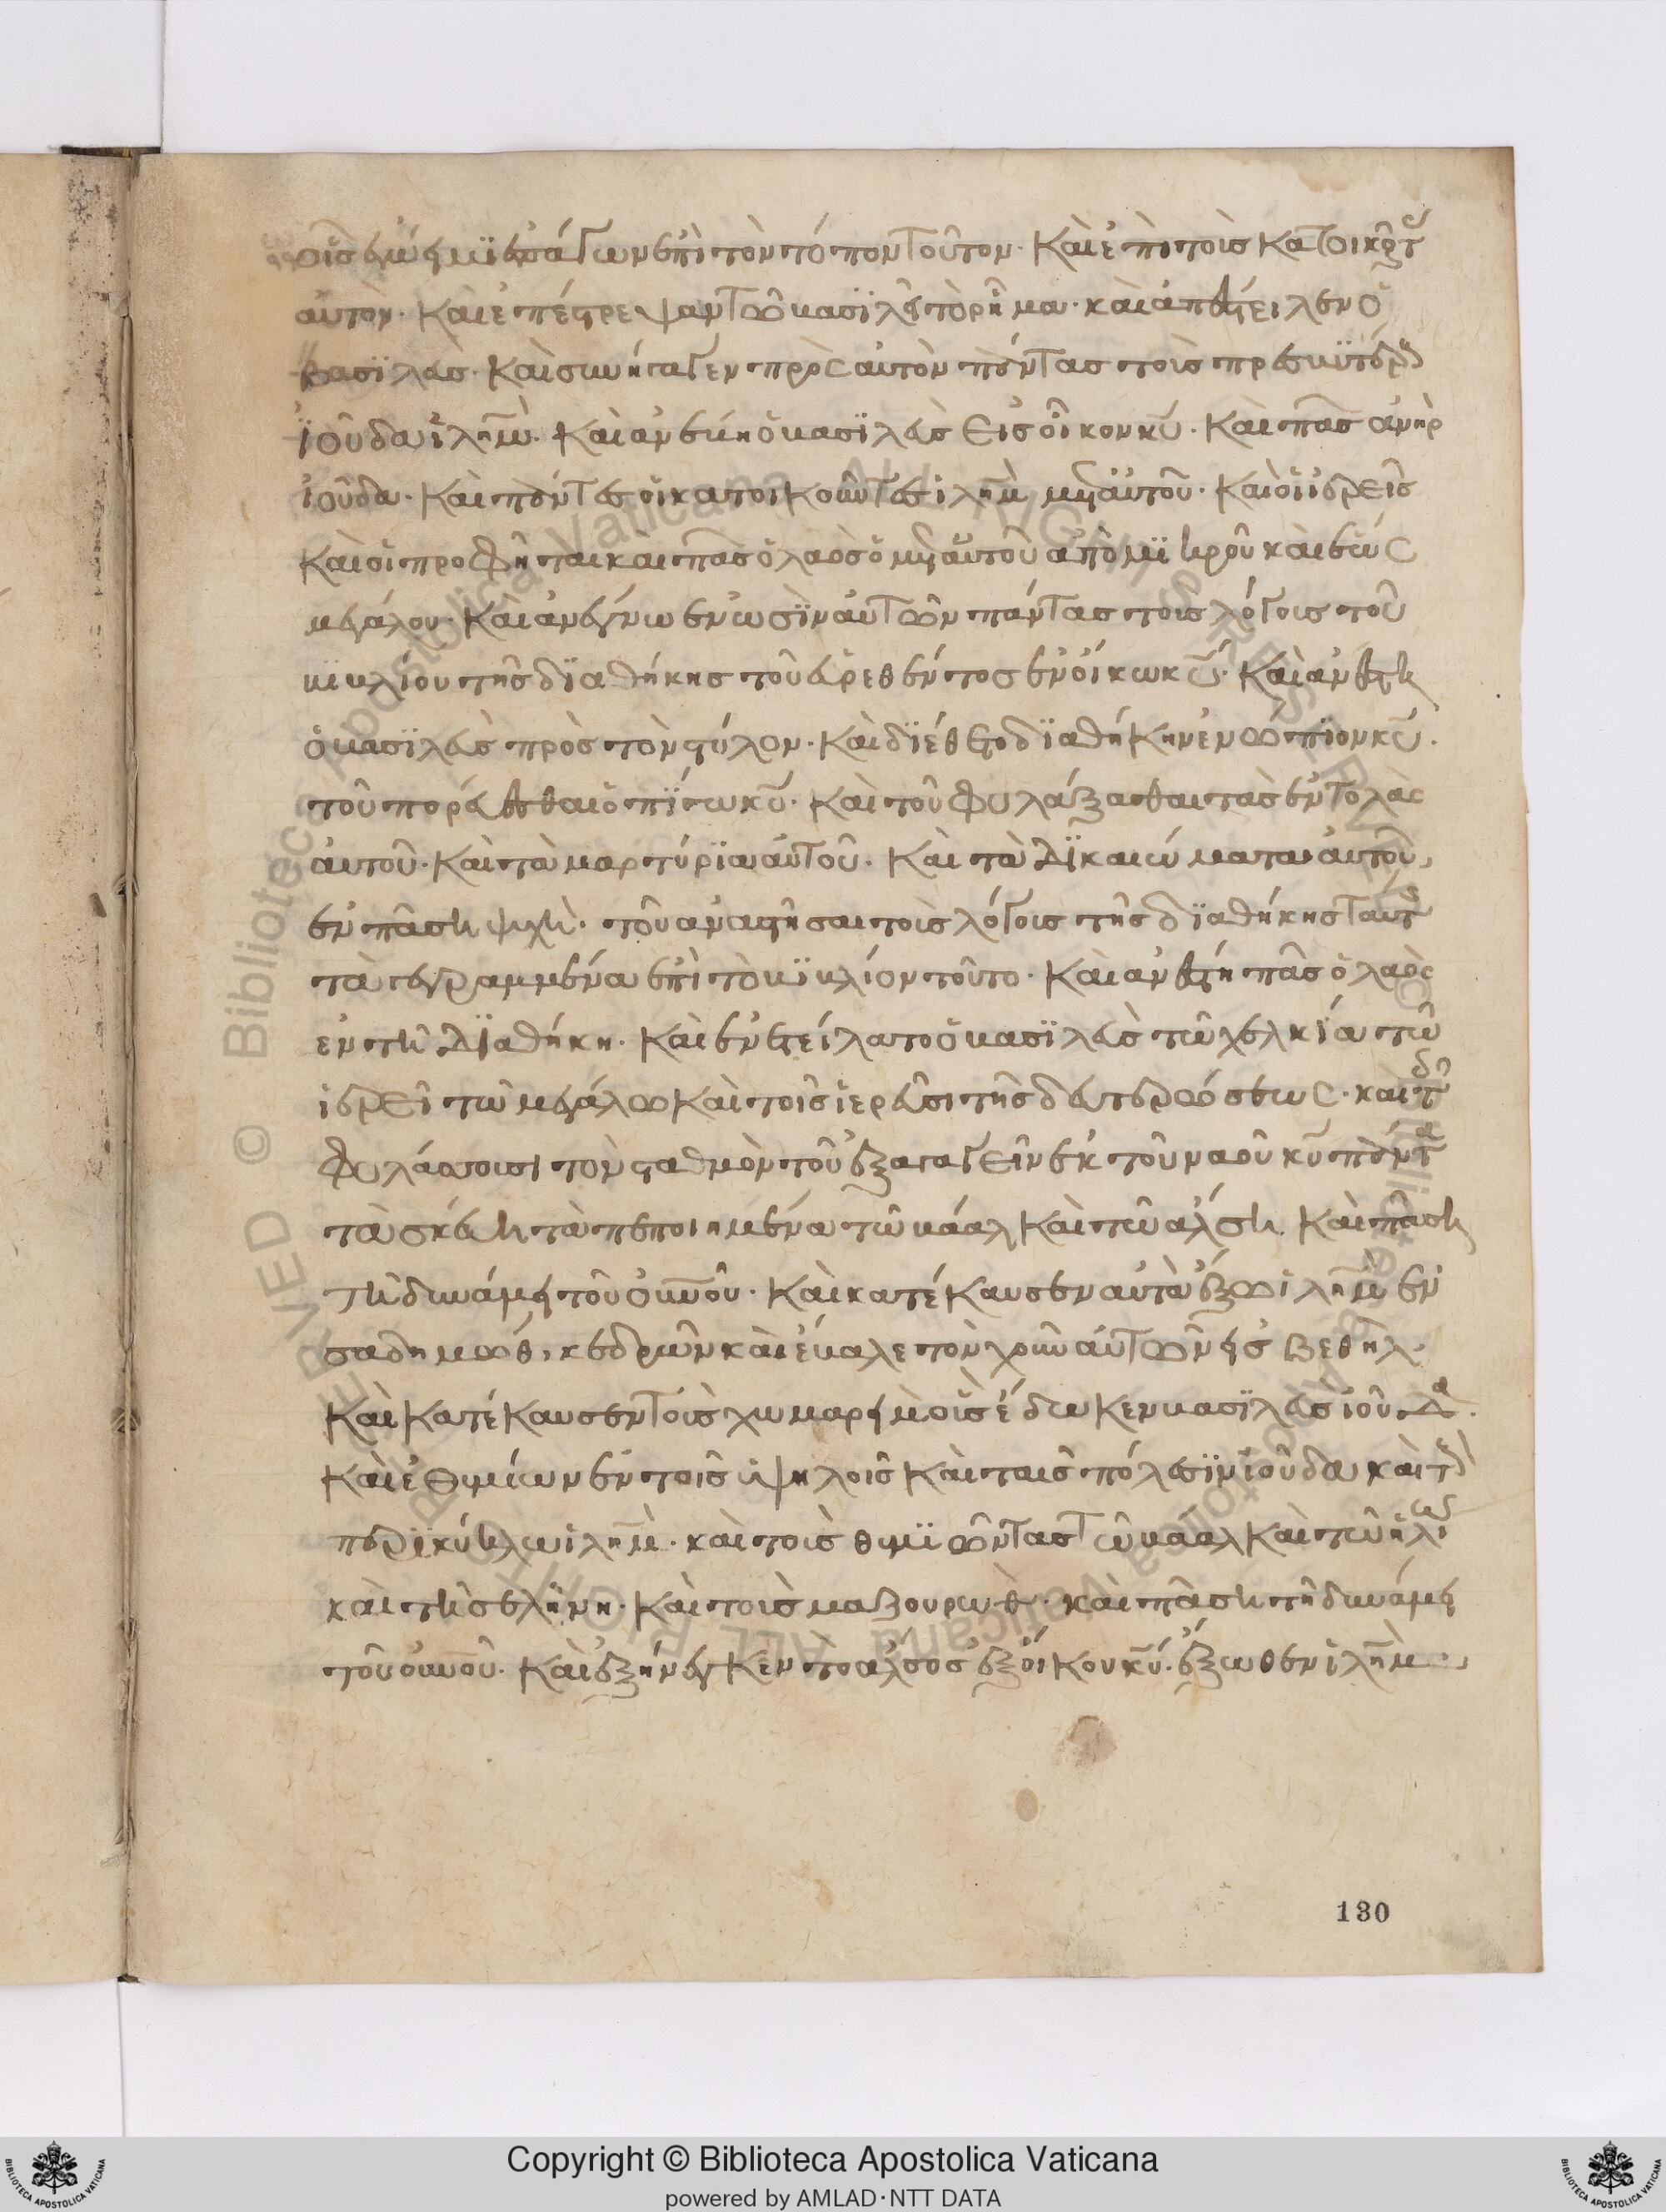 οἷς ἐγώ εἰμι ἐπάγων ἐπὶ τὸν τόπον τοῦτον· καὶ ἐπὶ τοὺς κατοικοῦντ
αὐτὸν· καὶ ἐπέστρεψαν τῶ βασϊλεῖ τὸ ρῆμα· καὶ ἀπέστειλεν ὁ
βασϊλεὺς· καὶ συνήγαγεν πρὸς αὐτὸν πάντας τοὺς πρεσβϋτέρ
ϊούδα ἰλημ· καὶ ἀνέβη ὁ βασϊλεὺς εἰς οἶκον κυ· καὶ πᾶς ἀνὴρ
ἰούδα· καὶ πάντες οἱ κατοικοῦντες ἰλημ μετ αὐτοῦ· καὶ οἱ ἱερεῖς
καὶ οἱ προφῆται καὶ πᾶς ὁ λαὸς ὁ μετ αὐτοῦ ἀπὸ μϊκροῦ καὶ ἕως
μεγάλου· καὶ ἀνέγνω ἐν ὠσὶν αὐτῶν πάντας τοὺς λόγους τοῦ
βϊβλίου τῆς δϊαθήκης τοῦ εὑρεθέντος ἐν οἴκω κυ· καὶ ἀνέστη
ὁ βασϊλεὺς πρὸς τὸν στύλον· καὶ δϊέθετο δϊαθήκην ἐνώπϊον κυ·
τοῦ πορεύεσθαι ὀπΐσω κυ· καὶ τοῦ φυλάξασθαι τὰς ἐντολὰς
αὐτοῦ· καὶ τὰ μαρτύρϊα αὐτοῦ· καὶ τὰ δϊκαιώματα αὐτοῦ,
ἐν πάση ψυχῆ· τοῦ ἀναστῆσαι τοὺς λόγους τῆς δϊαθήκης ταύτ
τὰ γεγραμμένα ἐπὶ τὸ βϊβλίον τοῦτο· καὶ ἀνέστη πᾶς ὁ λαὸς
ἐν τῆ δϊαθήκη· καὶ ἐνετείλατο ὁ βασϊλεὺς τῶ χελκία τῶ
ἱερεῖ τῶ μεγάλω καὶ τοῖς ἱερεῦσι τῆς δευτερώσεως· καὶ τ
φυλάσσουσι τὸν σταθμὸν τοῦ ἐξαγαγεῖν ἐκ τοῦ ναοῦ κυ πάντα
τὰ σκεύη τὰ πεποιημένα τῶ βάαλ καὶ τῶ ἄλση καὶ πάση
τῆ δυνάμει τοῦ οὐνοῦ· καὶ κατέκαυσεν αὐτὰ ἔξω ἰλημ ἐν
σαδημώθ, κεδρὼν καὶ ἔβαλε τὸν χοῦν αὐτῶν εἰς βεθὴλ·
καὶ κατέκαυσεν τοὺς χωμαρεὶμ οὓς ἔδωκεν βασϊλεὺς ἰούδα·
καὶ ἐθυμίων ἐν τοῖς ὑψηλοῖς καὶ ταῖς πόλεσϊν ἰούδα καὶ τ
περϊκύκλω ἰλημ· καὶ τοὺς θυμϊῶντας τῶ βάαλ καὶ τῶ ἡλίω
καὶ τῆ σελήνη· καὶ τοὺς μαζουρωθ· καὶ πάση τῆ δυνάμει
τοῦ οὐνοῦ· καὶ ἐξήνεγκεν τὸ ἄλσος ἐξ οἴκου κυ· ἔξωθεν ἰλημ
130
Copyright © Biblioteca Apostolica Vaticana
powered by AMLAD·NTT DATA